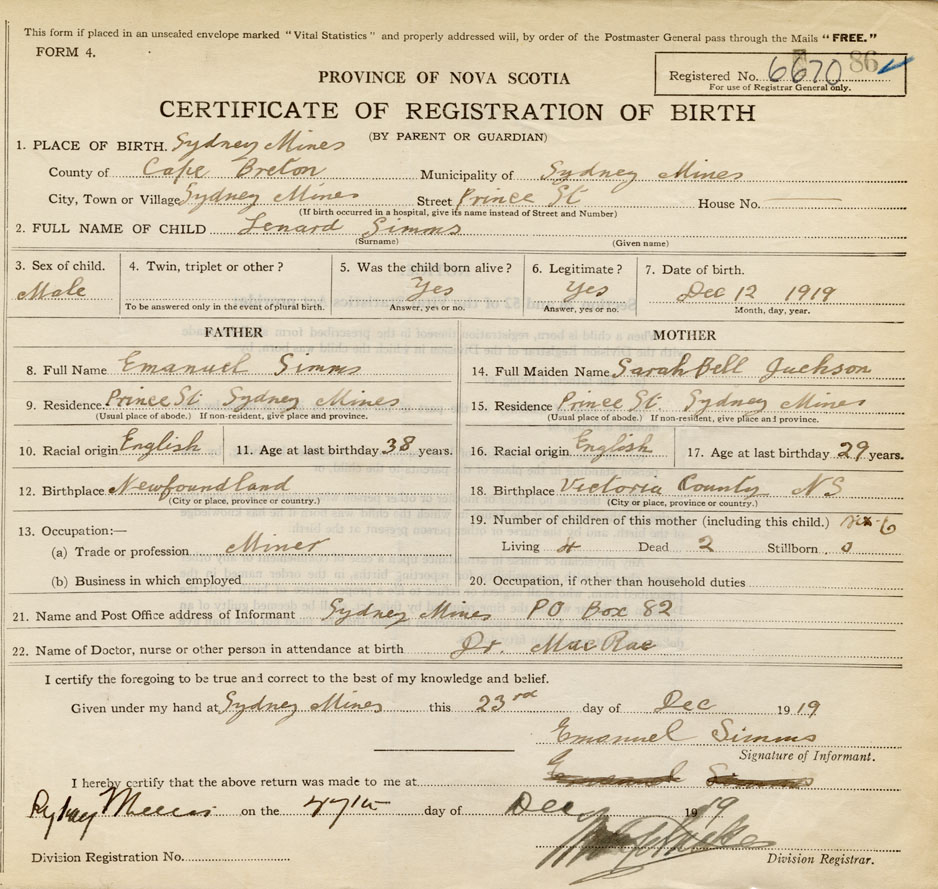 This form if placed in an unsealed envelope marked "Vital Statistics" and properly addressed will, by order of the Postmaster General pass through the Mails "FREE."
FORM 4.
PROVINCE OF NOVA SCOTIA
Registered No. 6670 86
For use of Registrar General only.
CERTIFICATE OF REGISTRATION OF BIRTH
(BY PARENT OR GUARDIAN)
1. PLACE OF BIRTH. Sydney Mines
County of Cape Breton Municipality of Sydney Mines
City, Town or Village Sydney Mines Street Prince St House No.
(If birth occurred in a hospital, give its name instead of Street and Number)
2. FULL NAME OF CHILD Lenard Simms
(Surname) (Given name)
3. Sex of child. 4. Twin, triplet or other? 5. Was the child born alive? 6. Legitimate? 7. Date of birth.
Male Yes Yes Dec 12 1919
To be answered only in the event of plural birth. Answer, yes or no. Answer, yes or no. Month, day, year.
FATHER MOTHER
8. Full Name Emanuel Simms 14. Full Maiden Name Sarah Bell Jackson
9. Residence Prince St. Sydney Mines 15. Residence Prince St. Sydney Mines
(Usual place of abode.) If non-resident, give place and province. (Usual place of abode.) If non-resident, give place and province.
10. Racial origin English 11. Age at last birthday 38 years. 16. Racial origin English 17. Age at last birthday 29 years.
12. Birthplace Newfoundland 18. Birthplace Victoria County NS
(City or place, province or country.) (City or place, province or country.)
13. Occupation:— 19. Number of children of this mother (including this child.) six-6
(a) Trade or profession Miner Living 4 Dead 2 Stillborn 0
(b) Business in which employed 20. Occupation, if other than household duties
21. Name and Post Office address of Informant Sydney Mines PO Box 82
22. Name of Doctor, nurse or other person in attendance at birth Dr. MacRae
I certify the foregoing to be true and correct to the best of my knowledge and belief.
Given under my hand at Sydney Mines this 23rd day of Dec 1919
Emanuel Simms
Signature of Informant.
I hereby certify that the above return was made to me at Emanuel Simms
Sydney Mines on the day of Dec 1919
Division Registration No. Division Registrar.